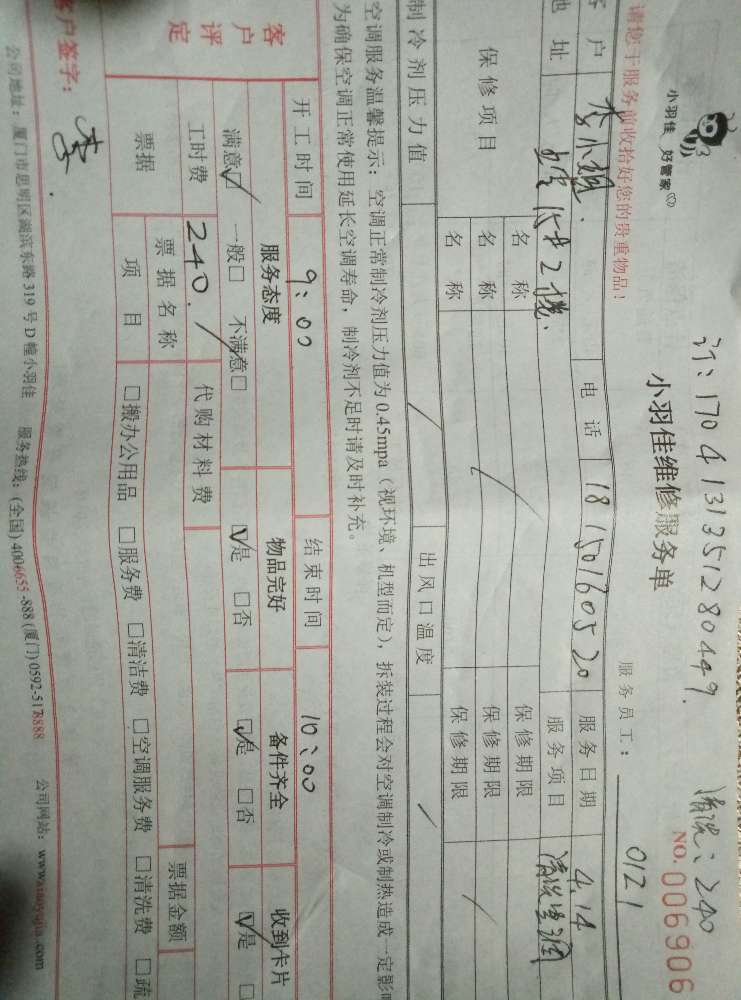 订:1704131351280449.
清洗:240
小羽佳 好管家
小羽佳维修服务单
NO.006906
服务员工: 0121
请您于服务前收拾好您的贵重物品!
客户 李小姐. 电话 18150160520 服务日期 4.14
地址 服务项目 清洗空调
保修项目 名称 保修期限
名称 保修期限
名称 保修期限
制冷剂压力值 出风口温度
空调服务温馨提示:空调正常制冷剂压力值为0.45mpa(视环境、机型而定),拆装过程会对空调制冷或制热造成一定影响
为确保空调正常使用延长空调寿命,制冷剂不足时请及时补充。
开工时间 9:00 结束时间 10:00
客户评定 服务态度 物品完好 备件齐全 收到卡片
满意☑ 一般□ 不满意□ ☑是 □否 ☑是 □否 ☑是 □
工时费 240. 代购材料费
票据 票据名称 票据金额
项目 □搬办公用品 □服务费 □清洁费 □空调服务费 □清洗费 □疏
客户签字: 李
公司地址:厦门市思明区湖滨东路319号D幢小羽佳 服务热线:(全国)4006655-888(厦门)0592-5178888 公司网站:www.xiaoyujia.com